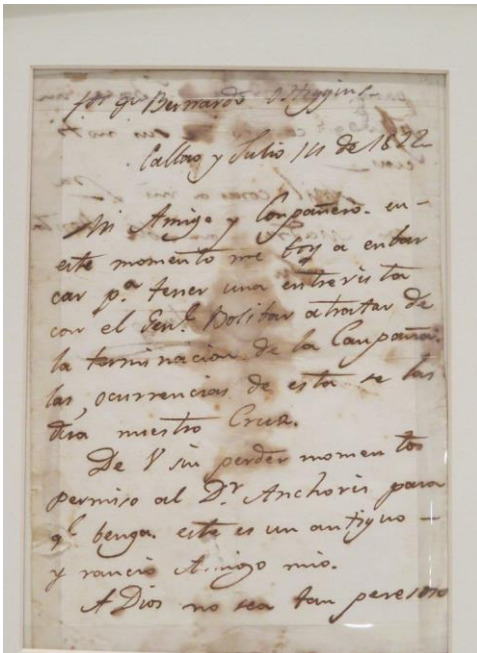 Bernardo O Higgins
Callao y Julio 14 de 1822
Mi Amigo y Compañero. en-
este momento me boy a enbar
car pª tener una entrevista
con el Genl. Bolibar a tratar de
la terminacion de la Campaña.
las ocurrencias de esta se las
dira nuestro Cruz.
De V sin perder momentos
permiso al Dr. Anchoris para
qe benga. este es un antiguo -
y rancio Amigo mio.
A Dios no sea tan peresoso